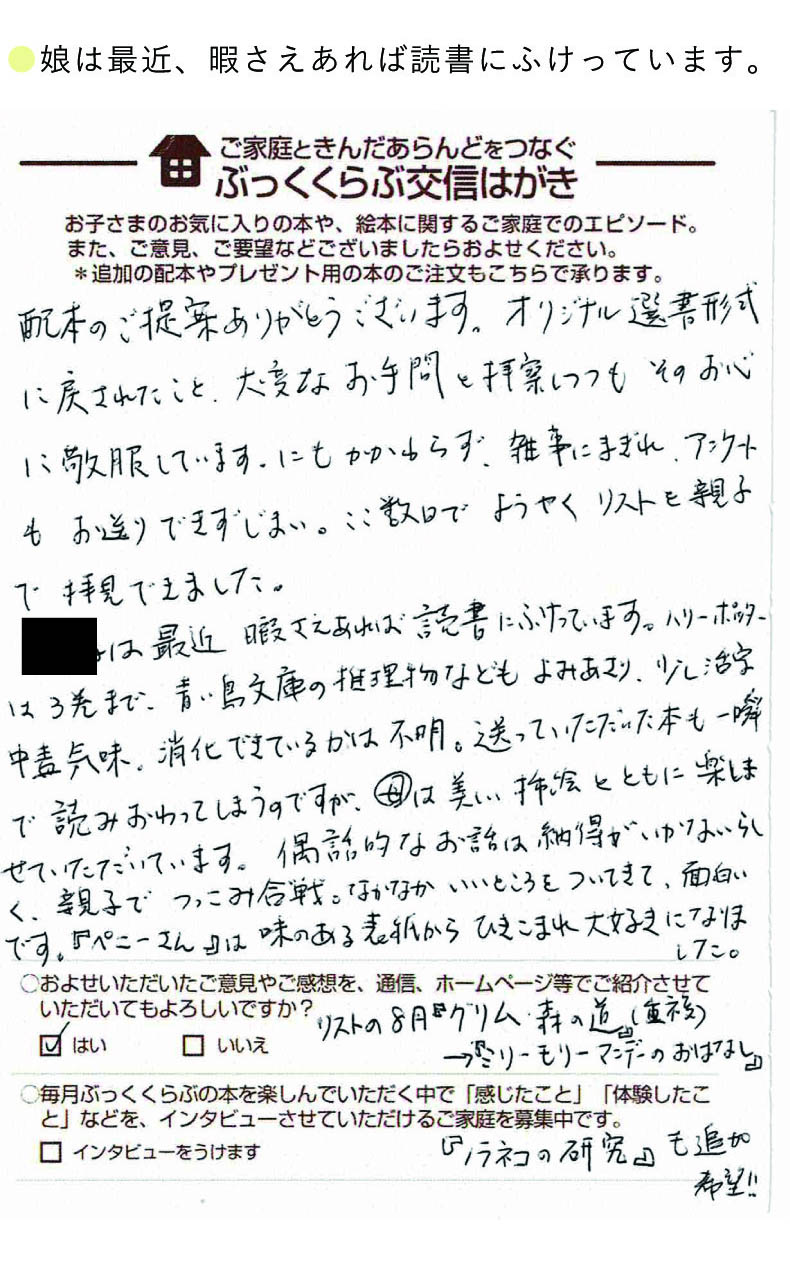 娘は最近、暇さえあれば読書にふけっています。
ご家庭ときんだあらんどをつなぐ
ぶっくくらぶ交信はがき
お子さまのお気に入りの本や、絵本に関するご家庭でのエピソード。
また、ご意見、ご要望などございましたらおよせください。
＊追加の配本やプレゼント用の本のご注文もこちらで承ります。
配本のご提案ありがとうございます。オリジナル選書形式
に戻されたこと、大変なお手間と拝察しつつもそのお心
に敬服しています。にもかかわらず、雑事にまぎれ、アンケート
もお送りできずじまい。ここ数日でようやくリストを親子
で拝見できました。
は最近 暇さえあれば読書にふけっています。ハリーポッター
は3巻まで、青い鳥文庫の推理物などもよみあさり、少し活字
中毒気味。消化できているかは不明。送っていただいた本も一瞬
で読みおわってしまうのですが、㊌は美しい挿絵とともに楽しま
せていただいています。偶話的なお話は納得がいかないらし
く、親子でつっこみ合戦。なかなかいいところをついてきて、面白い
です。『ペニーさん』は味のある表紙からひきこまれ大好きになりま
した。
○およせいただいたご意見やご感想を、通信、ホームページ等でご紹介させて
いただいてもよろしいですか？
リストの8月『グリム・森の道』(重複)
はい いいえ
→『ミリー・モリー・マンデーのおはなし』
○毎月ぶっくくらぶの本を楽しんでいただく中で「感じたこと」「体験したこ
と」などを、インタビューさせていただけるご家庭を募集中です。
インタビューをうけます
『ノラネコの研究』も追加
希望!!